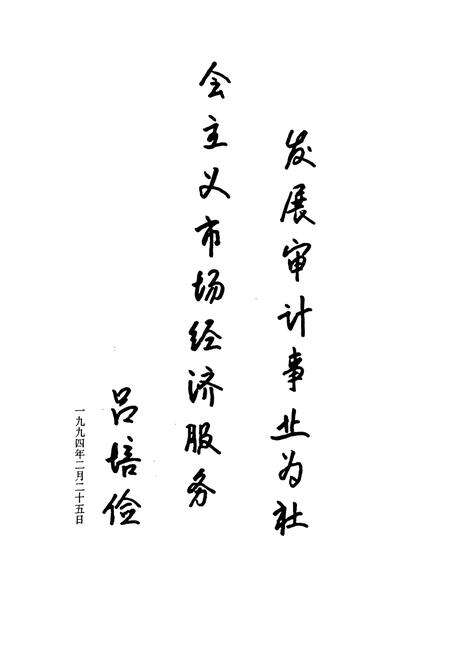 发展审计事业为社
会主义市场经济服务
吕培俭
一九九四年二月二十五日